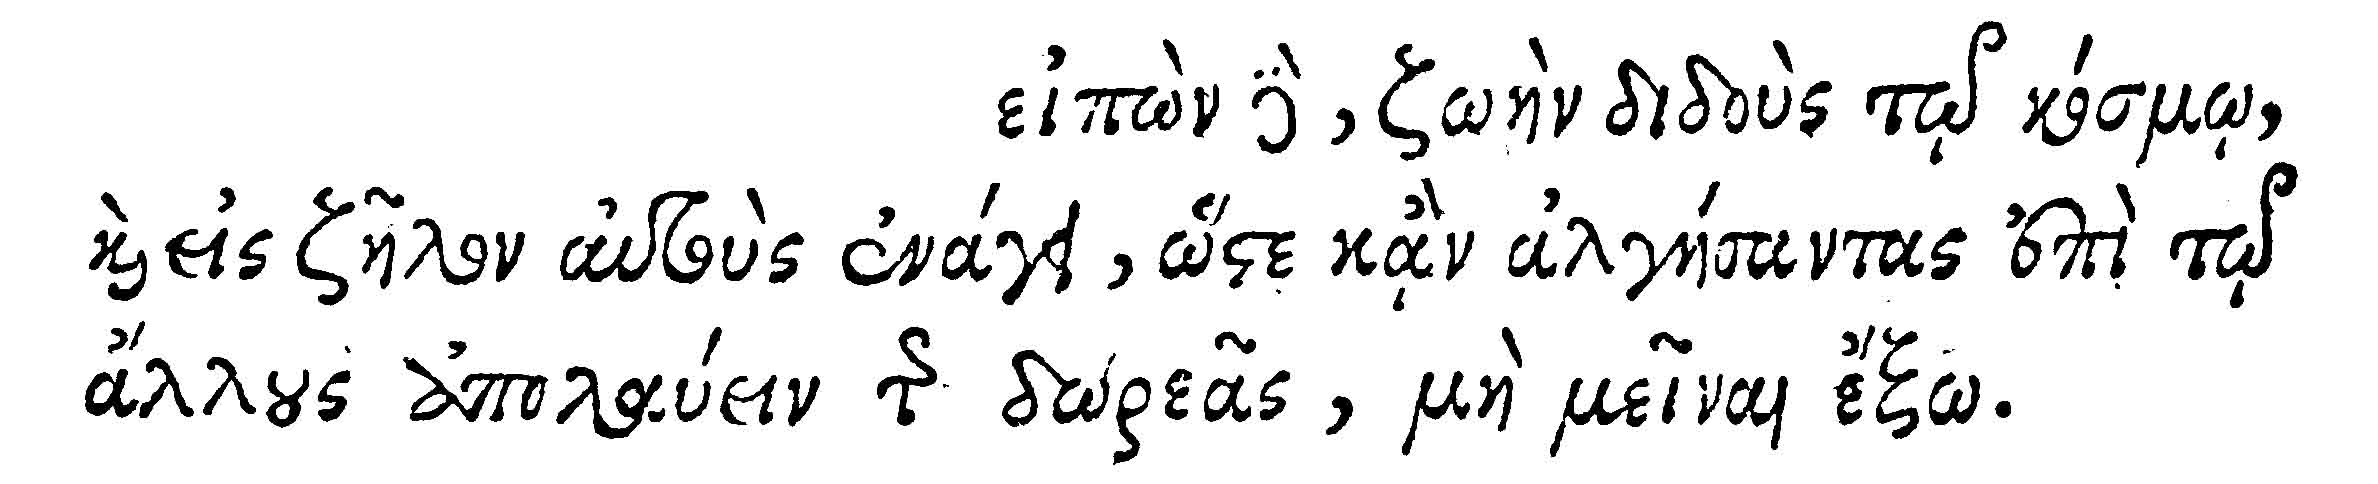 εἰπὼν δὲ, ζωὴν διδοὺς τῷ κόσμῳ,
καὶ εἰς ζῆλον αὐτοὺς ἐνάγει, ὥστε κᾂν ἀλγήσαντας ἐπὶ τῷ
ἄλλους ἀπολαύειν τῆς δωρεᾶς, μὴ μεῖναι ἔξω.